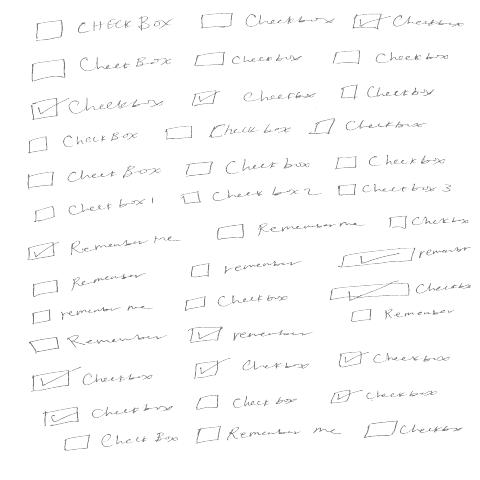 CHECK BOX Checkbox Checkbox
Check Box Checkbox Checkbox
Checkbox Checkbox Checkbox
Check Box Check box Checkbox
Check Box Check box Checkbox
Check box 1 Check box 2 Check box 3
Remember Me Remember me Checkbox
Remember remember remember
remember me Checkbox Checkbx
Remember remember Remember
Checkbox Checkbox Checkbox
Checkbox Check box Checkbox
Check Box Remember me Checkbox